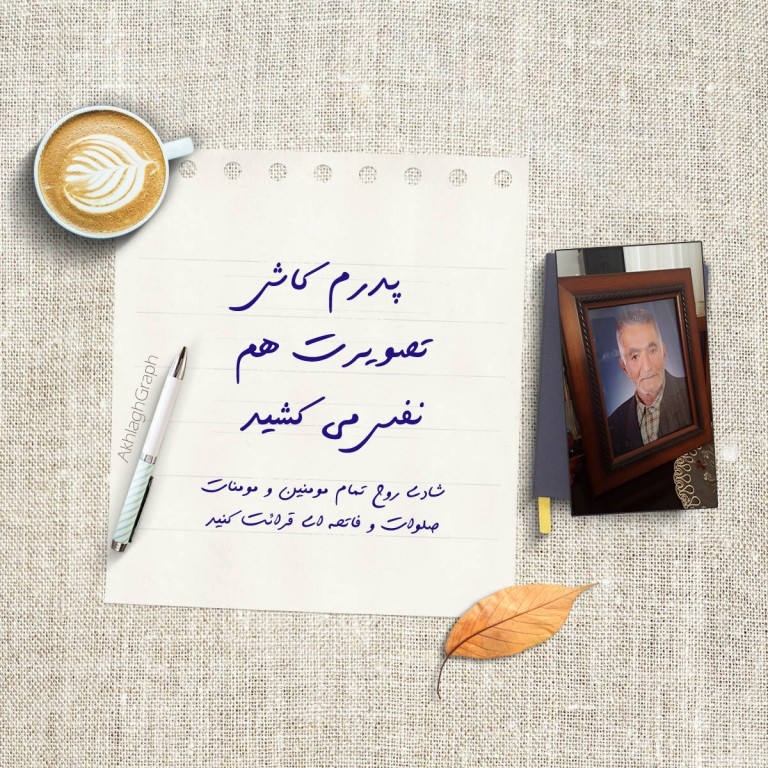 پدرم کاش
تصویرت هم
نفس می کشید
شادی روح تمام مومنین و مومنات
صلوات و فاتحه ای قرائت کنید
AkhlaghGraph